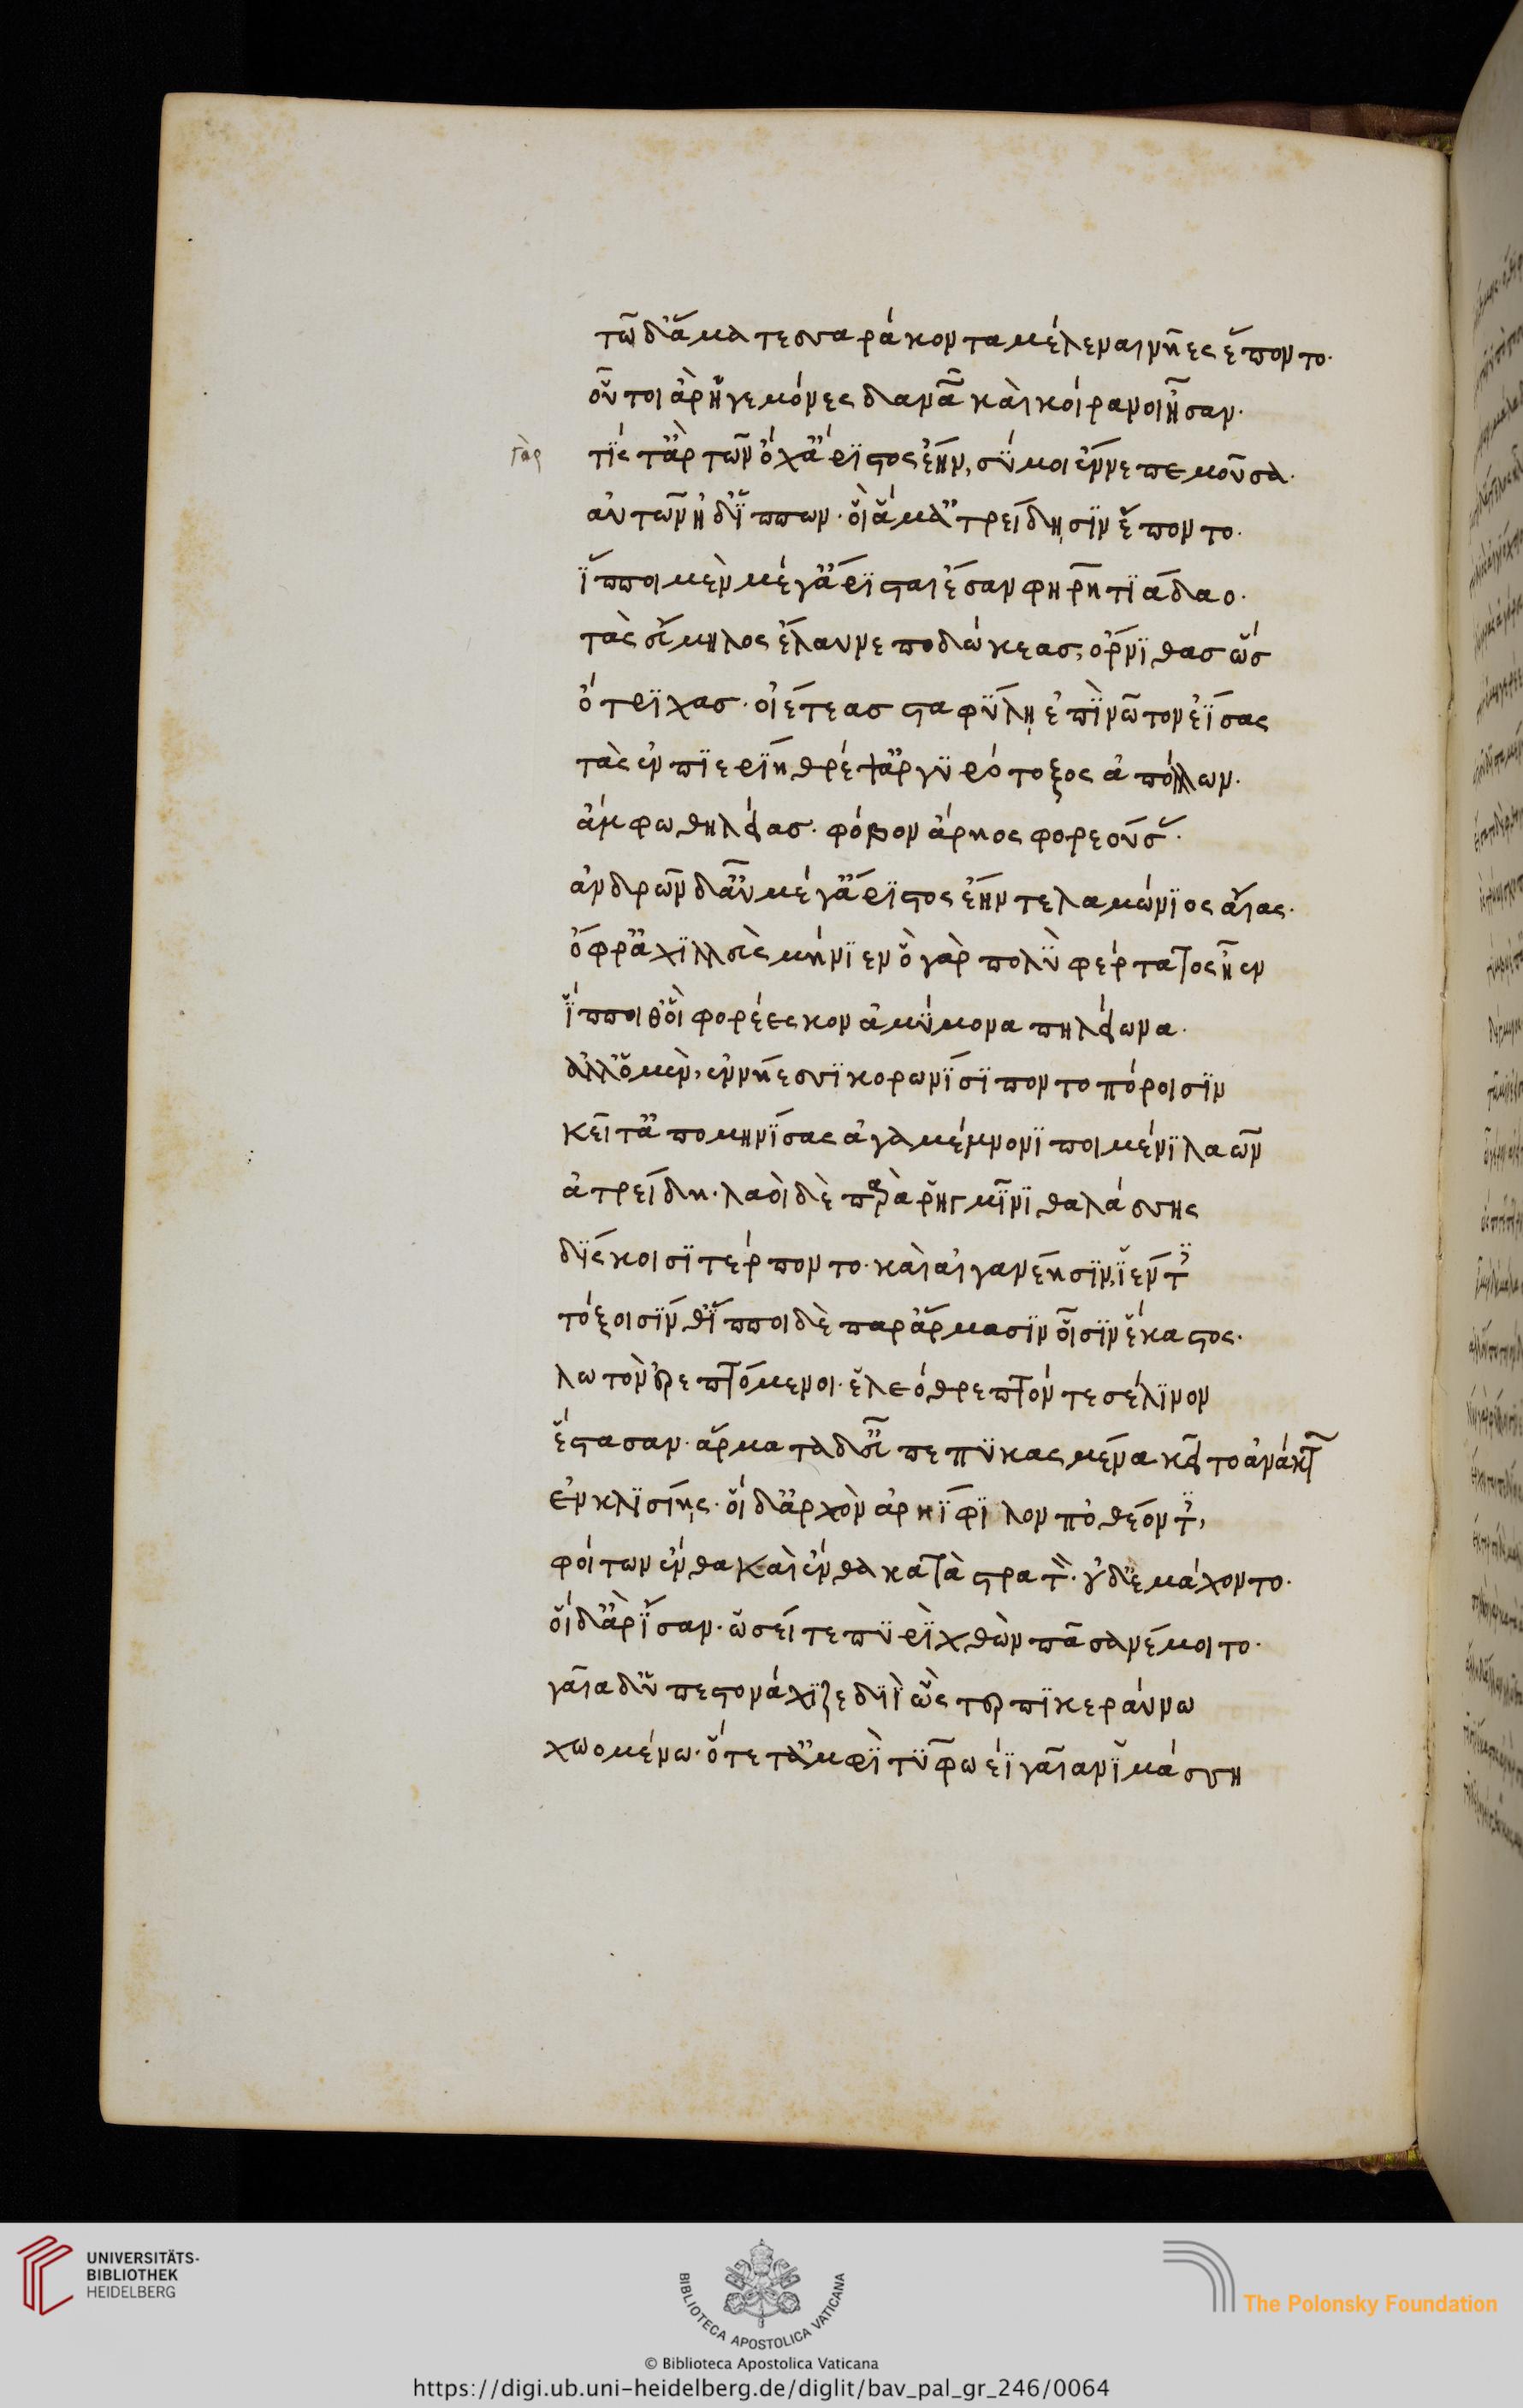 τῶ δ' ἅμα τεσσαράκοντα μέλεναι νῆες ἕποντο.
οὗτοι ἂρ ἡγεμόνες δαναῶ καὶ κοίρανοι ἦσαν.
τίς τ' ἂρ τῶν ὄχ' ἄριστος ἔην, σύ μοι ἔννεπε μοῦσα.
αὐτῶν ἠδ' ἵππων. οἳ ἅμ' ἀτρείδησιν ἕποντο.
ἵπποι μὲν μέγ' ἄρισται ἔσαν φηρητιάδαο.
τὰς εὔμηλος ἔλαυνε ποδώκεας, ὄρνιθας ὣς
ὄτριχας. οἰέτεας σταφύλη ἐπὶ νῶτον ἐΐσας
τὰς ἐν πιερίη θρέψ' ἀργυρότοξος ἀπόλλων.
ἄμφω θηλείας. φόβον ἄρηος φορεούσ.
ἀνδρῶν δ' αὖ μέγ' ἄριστος ἔην τελαμώνιος αἴας.
ὄφρ' ἀχιλλεὺς μήνιεν ὃ γὰρ πολὺ φέρτατος ἦεν
ἵπποι θ' οἳ φορέεσκον ἀμύμονα πηλείωνα.
ἀλλ' ὃ μὲν, ἐν νήεσσι κορωνίσι ποντοπόροισιν
κεῖτ' ἀπομηνίσας ἀγαμέμνονι ποιμένι λαῶν
ἀτρείδη. λαοὶ δὲ παρὰ ῥηγμῖνι θαλάσσης
δίσκοισι τέρποντο. καὶ αἰγανέησιν, ἱέντ
τόξοισίν θ' ἵπποι δὲ παρ' ἅρμασιν οἷσιν ἕκαστος.
λωτὸν ἐρεπτόμενοι. ἑλεόθρεπτόν τε σέλινον
ἕστασαν. ἅρματα δ' εὖ πεπυκασμένα κεῖτο ἀνάκτ
ἐν κλισίης. οἵ δ' ἀρχὸν ἀρηΐφιλον ποθέοντ,
φοίτων ἔνθα καὶ ἔνθα κατὰ στρατ. οὐδ' ἐμάχοντο.
οἵ δ' ἂρ ἴσαν. ὡσεί τε πυρὶ χθὼν πᾶσα νέμοιτο.
γαῖα δ' ὑπεστονάχιζε διῒ ὣς τερπικεραύνω
χωομένω. ὅτε τ' ἀμφὶ τυφωέϊ γαῖαν ἱμάσση
UNIVERSITÄTS-
BIBLIOTHEK
HEIDELBERG
BIBLIOTECA APOSTOLICA VATICANA
The Polonsky Foundation
© Biblioteca Apostolica Vaticana
https://digi.ub.uni-heidelberg.de/diglit/bav_pal_gr_246/0064